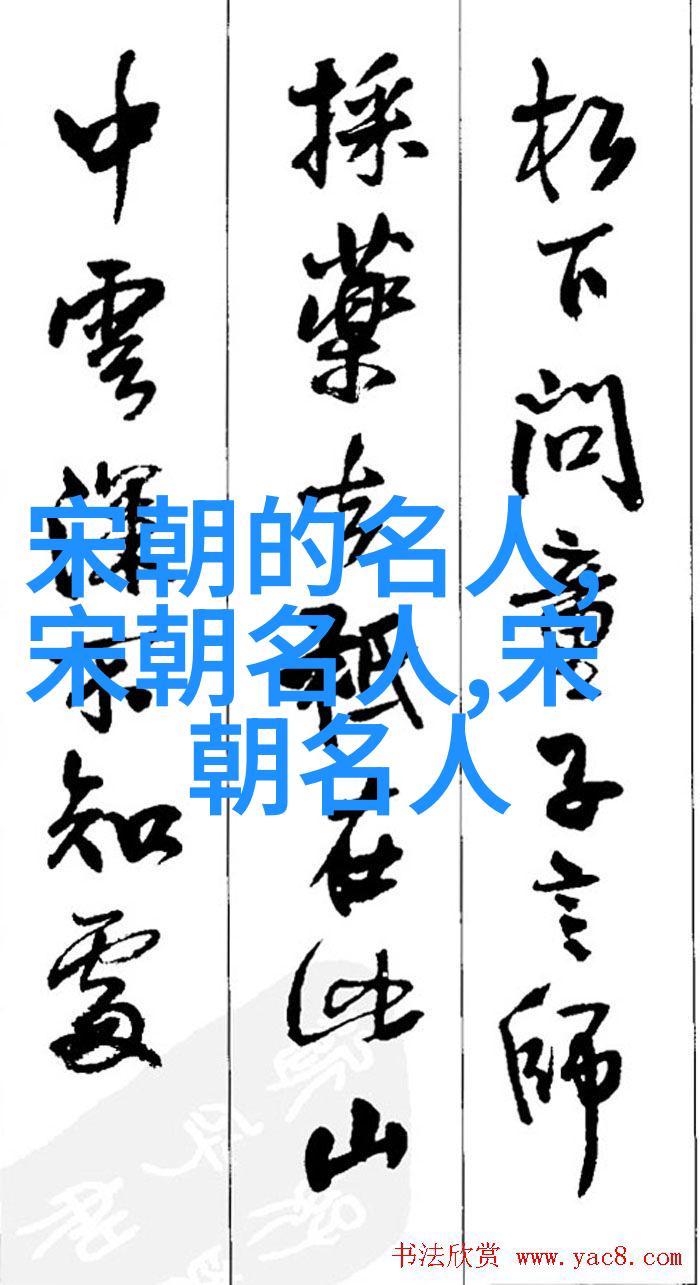 松下问童子言師
採藥去秖在此山
中雲深不知處
宋朝的名人,
宋朝名人,宋
朝名人
书法欣赏 www.yac8.com